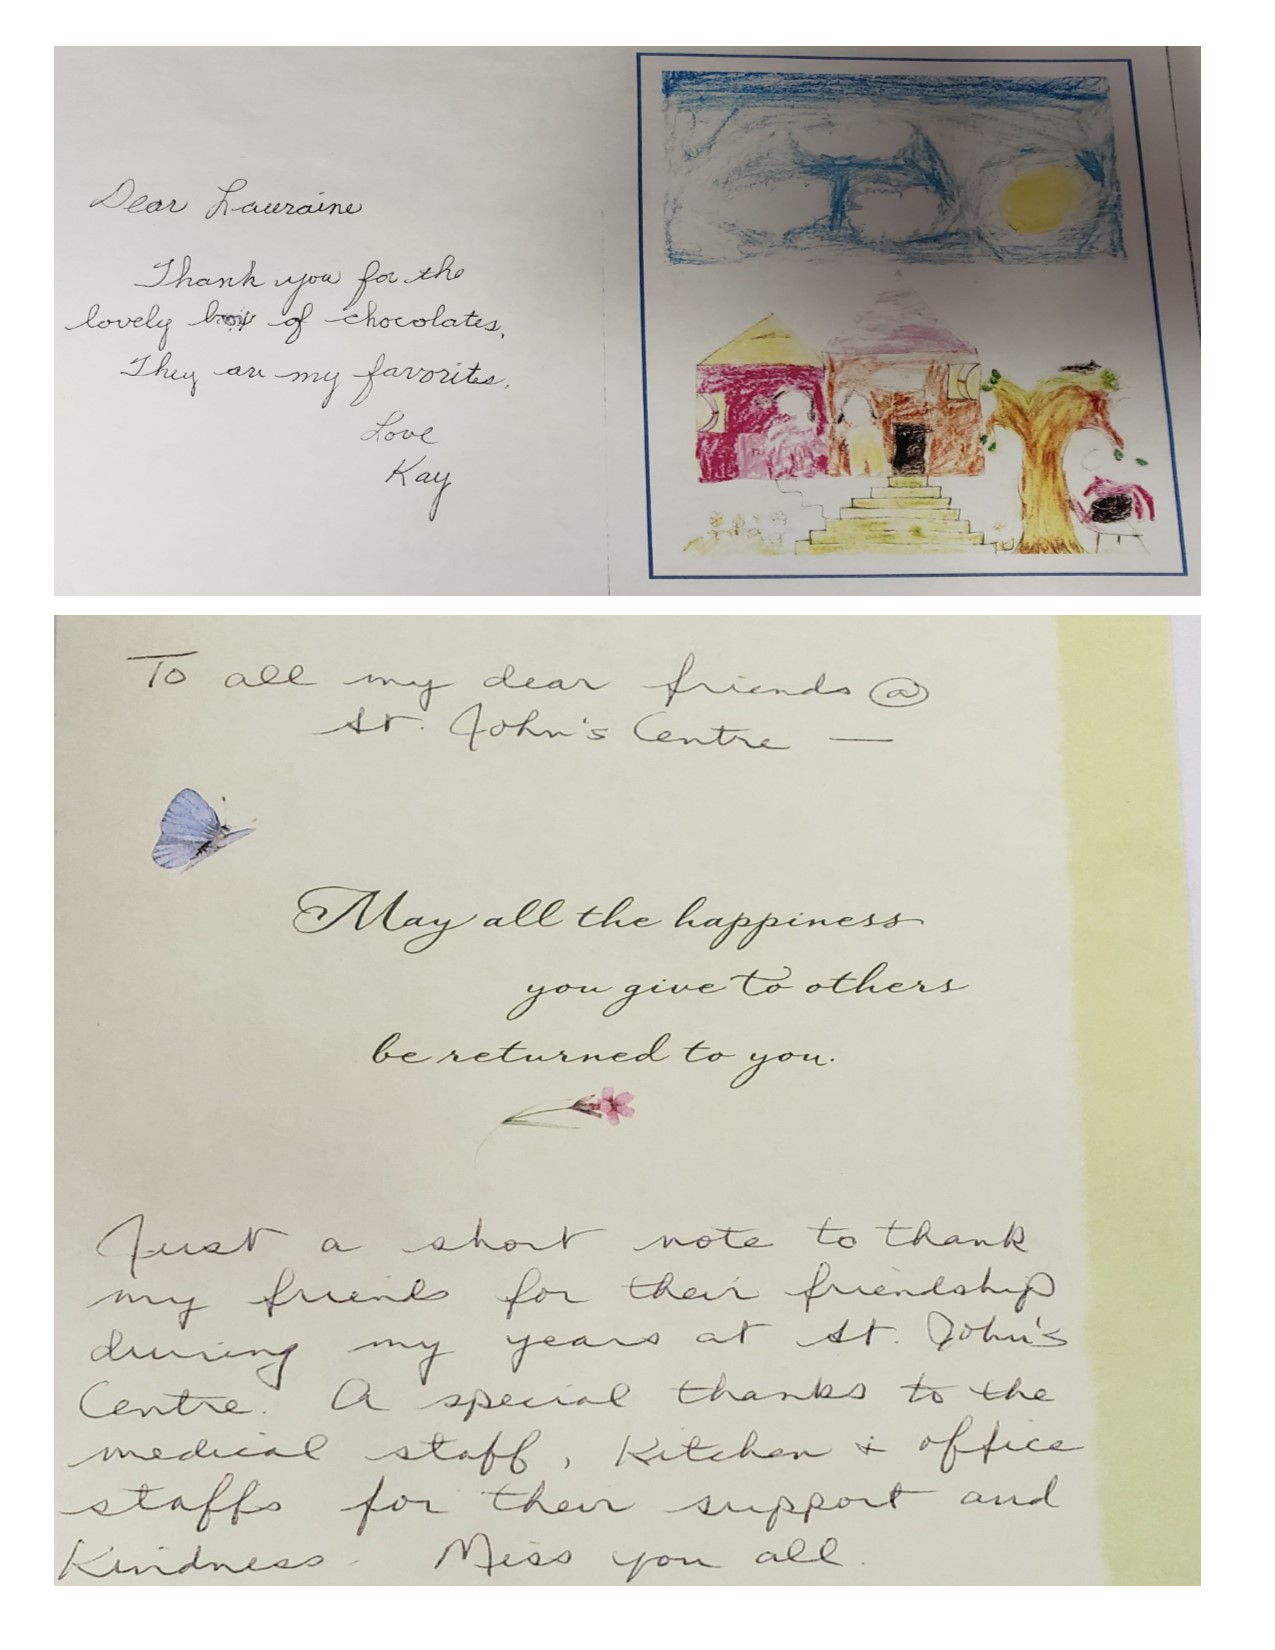 Dear Lauraine
Thank you for the
lovely box of chocolates.
They are my favorites.
Love
Kay
To all my dear friends @
St. John's Centre —
May all the happiness
you give to others
be returned to you.
Just a short note to thank
my friends for their friendship
during my years at St. John's
Centre. A special thanks to the
medical staff, Kitchen & office
staffs for their support and
Kindness. Miss you all.